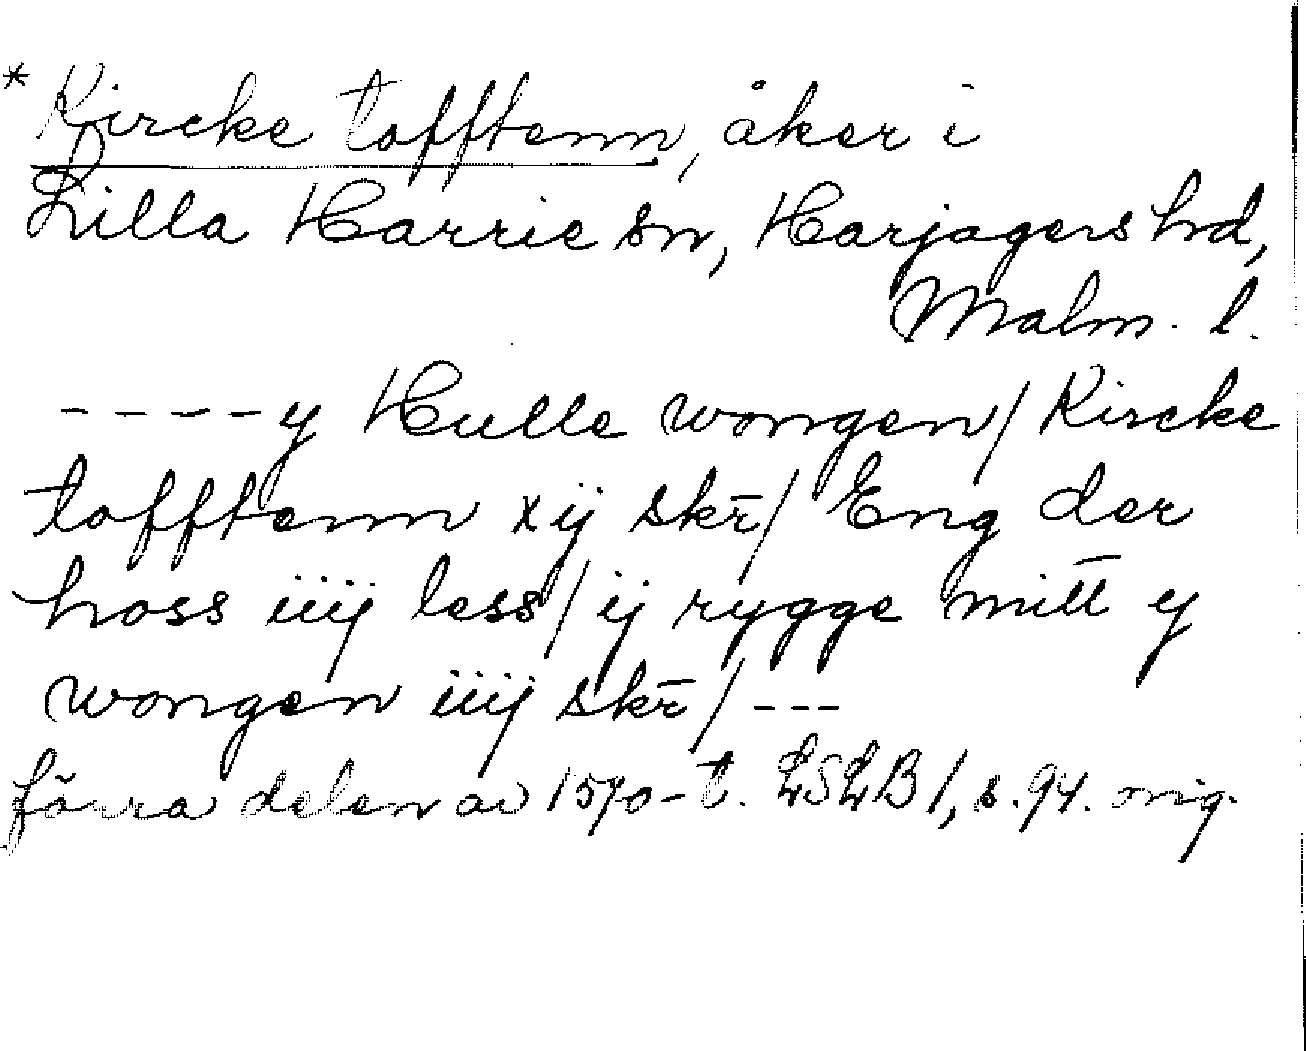 * Kircke tofftenn, åker i
Lilla Harrie sn, Harjagers hd,
Malm. l.
----y Hulle wongen/ Kircke
tofftenn xij skr̄/ Eng der
hoss iiij less/ ij rygge mitt̄ y
wongen iiij skr̄/ ---
förra delen av 1570-t. LSLB 1, s. 94. orig.